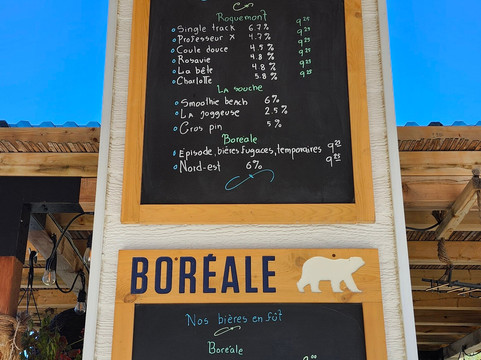 Roquemont
Single track 6.7% 9.25
Professeur x 4.7% 9.25
Coule douce 4.5% 9.25
Rosavie 4.8% 9.25
La bête 4.8% 9.25
Charlotte 5.8% 9.25
La souche
Smoothie beach 6%
La joggeuse 2.5%
Gros pin 5%
Boréale
Épisode, bières fugaces, temporaires 9.25
Nord-est 6% 9.25
BORÉALE
Nos bières en fût
Boréale